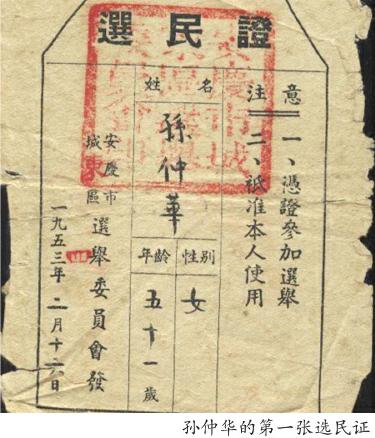 選民證
注意
一、憑證參加選舉
二、祇准本人使用
姓名
孫仲華
性別
女
年齡
五十一歲
安慶市
城東區
選舉委員會發
一九五三年二月十六日
孙仲华的第一张选民证